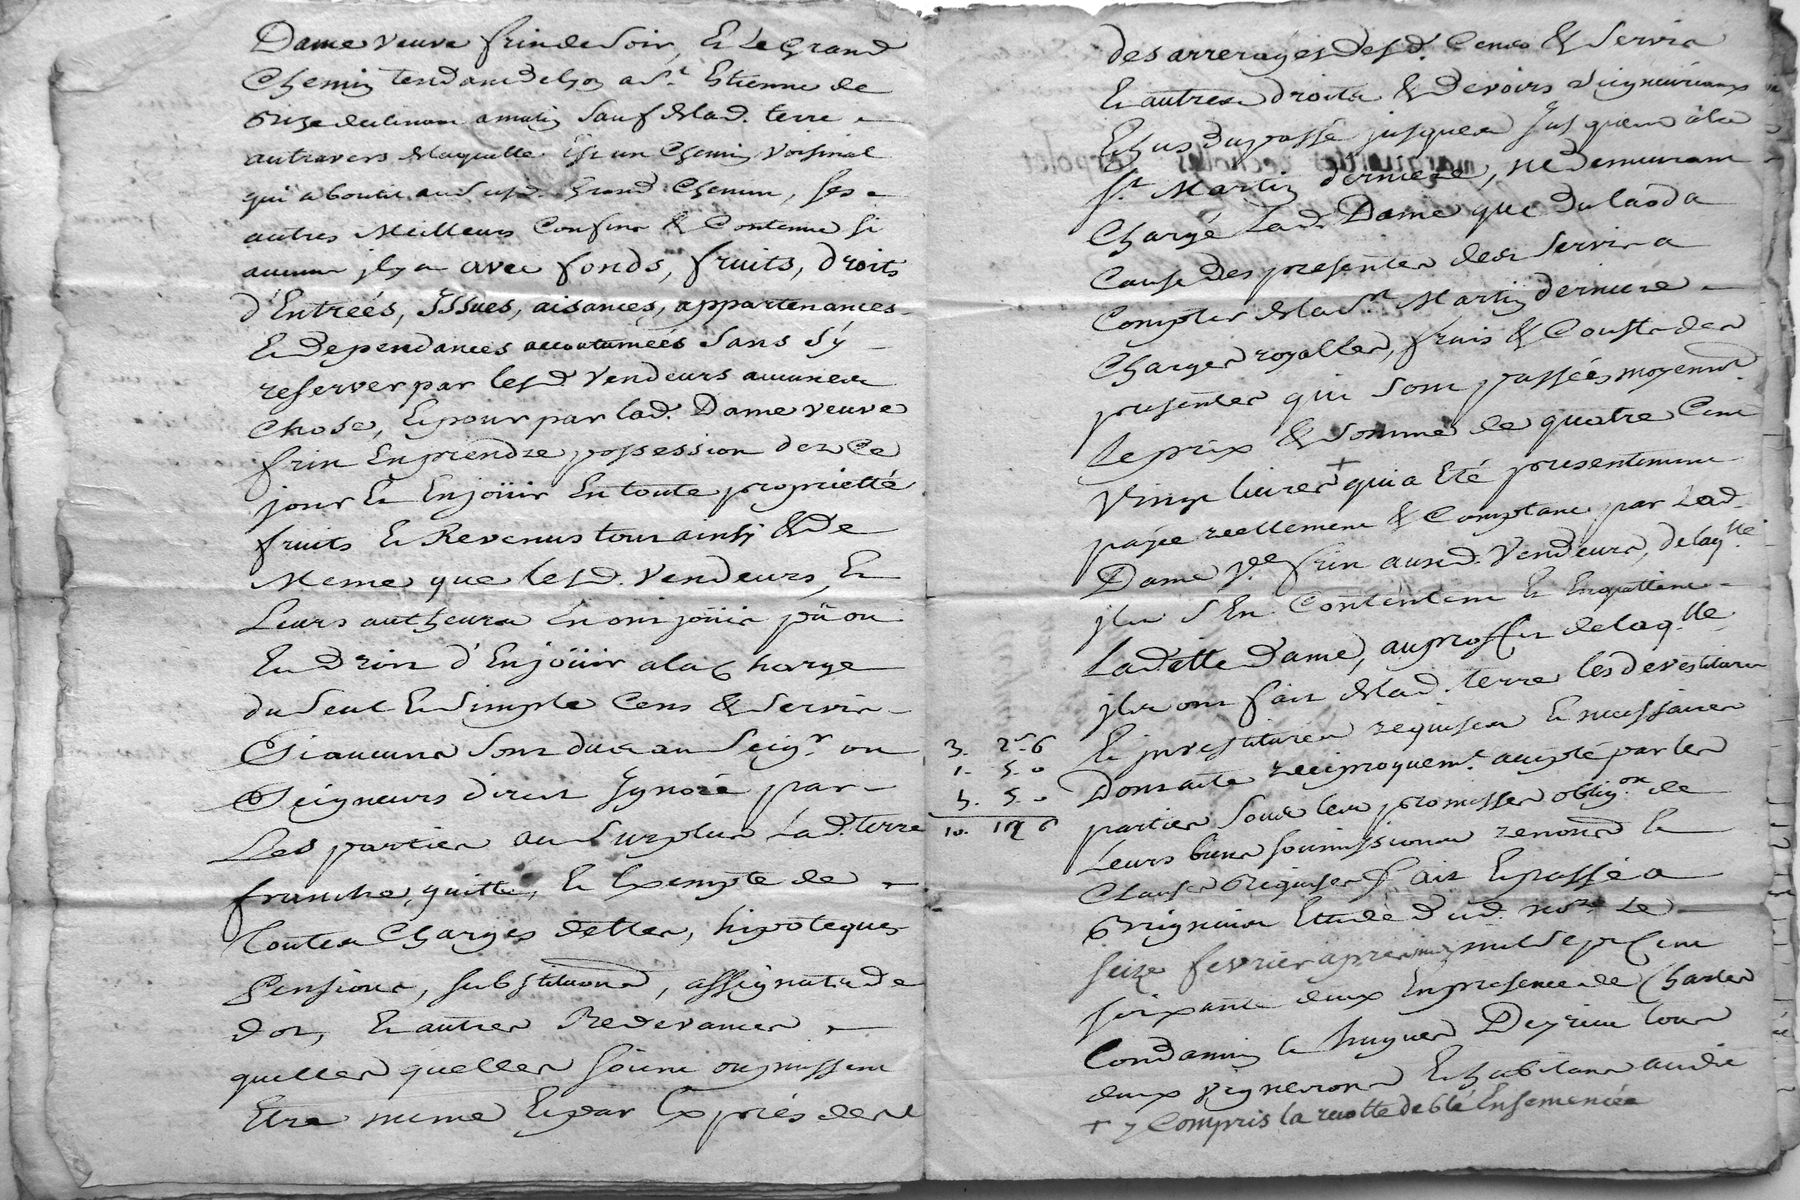 Dame veuve frin de Soir, Et Le Grand
Chemin tendant de lyon a St. Etienne de
autravers de laquelle Est un Chemin Voisinal
qui aboutit aud. susd. Grand Chemin, ses
autres Meilleurs Confins & Contenue si
aucun jl y a avec fonds, fruits, droits
d'Entrées, Jssues, aisances, appartenances
Et dependances accoutumées Sans S'y
reserver par lesd. Vendeurs aucune
Chose, Et pour par lad. Dame veuve
frin En prendre possession dez Ce
jour Et En joüir En toute proprietté
fruits Et Revenus tout ainsy & De
Meme que lesd. Vendeurs, Et
Leurs autheurs En ont joüir pû ou
Eu Droit d'En joüir a la Charge
du Seul Et Simple Cens & Servis
Si aucuns Sont dus au Seigr. ou
Seigneurs direct Jgnoré par
Les parties au Surplus Lad. terre
franche, quitte, Et Exempte de
Toutes Charges dettes, hipoteques
Pensions, substituons, assignats de
dot, Et autres Redevances
quelles quelles soient ou puissent
Etre meme Et par Exprés de
des arrerages desd. Cens & Servis
Et autres droits & Devoirs Seigneuriaux
Echus du passé jusques
St. Martin derniere, ne demeurant
Chargé Lad. Dame que du
Cause des presentes des Servis a
Compter de la St. Martin derniere
Charges royalles, frais & Cousts des
presentes qui Sont passées moyennt.
Le prix & Somme de quatre Cent
Vingt livres + qui a Eté presentement
payée reellement & Comptant par Lad.
Dame ve. frin ausd. Vendeurs, de laqlle.
jls S'En Contentent Et En quittent
Laditte Dame, au proffit de laqlle.
jls ont fait de lad. terre les devestitures
3. 2. 6
Et jnvestitures requises Et necessaires
1. 5. 0
Dont acte reciproquemt. accepté par les
5. 5.
parties Sous leurs promesses obligon. de
10. 6
Leurs biens soumissions renond. Et
Clauses Requises fait Et passé a
Brignais Etude dud. nore. Le
seize fevrier apres midy mil Sept Cent
soixante deux En presence de Charles
Condamin Et hugues Deyrieu tous
deux vignerons Et habitans audit
+ y Compris la recolte de blé Ensemencée